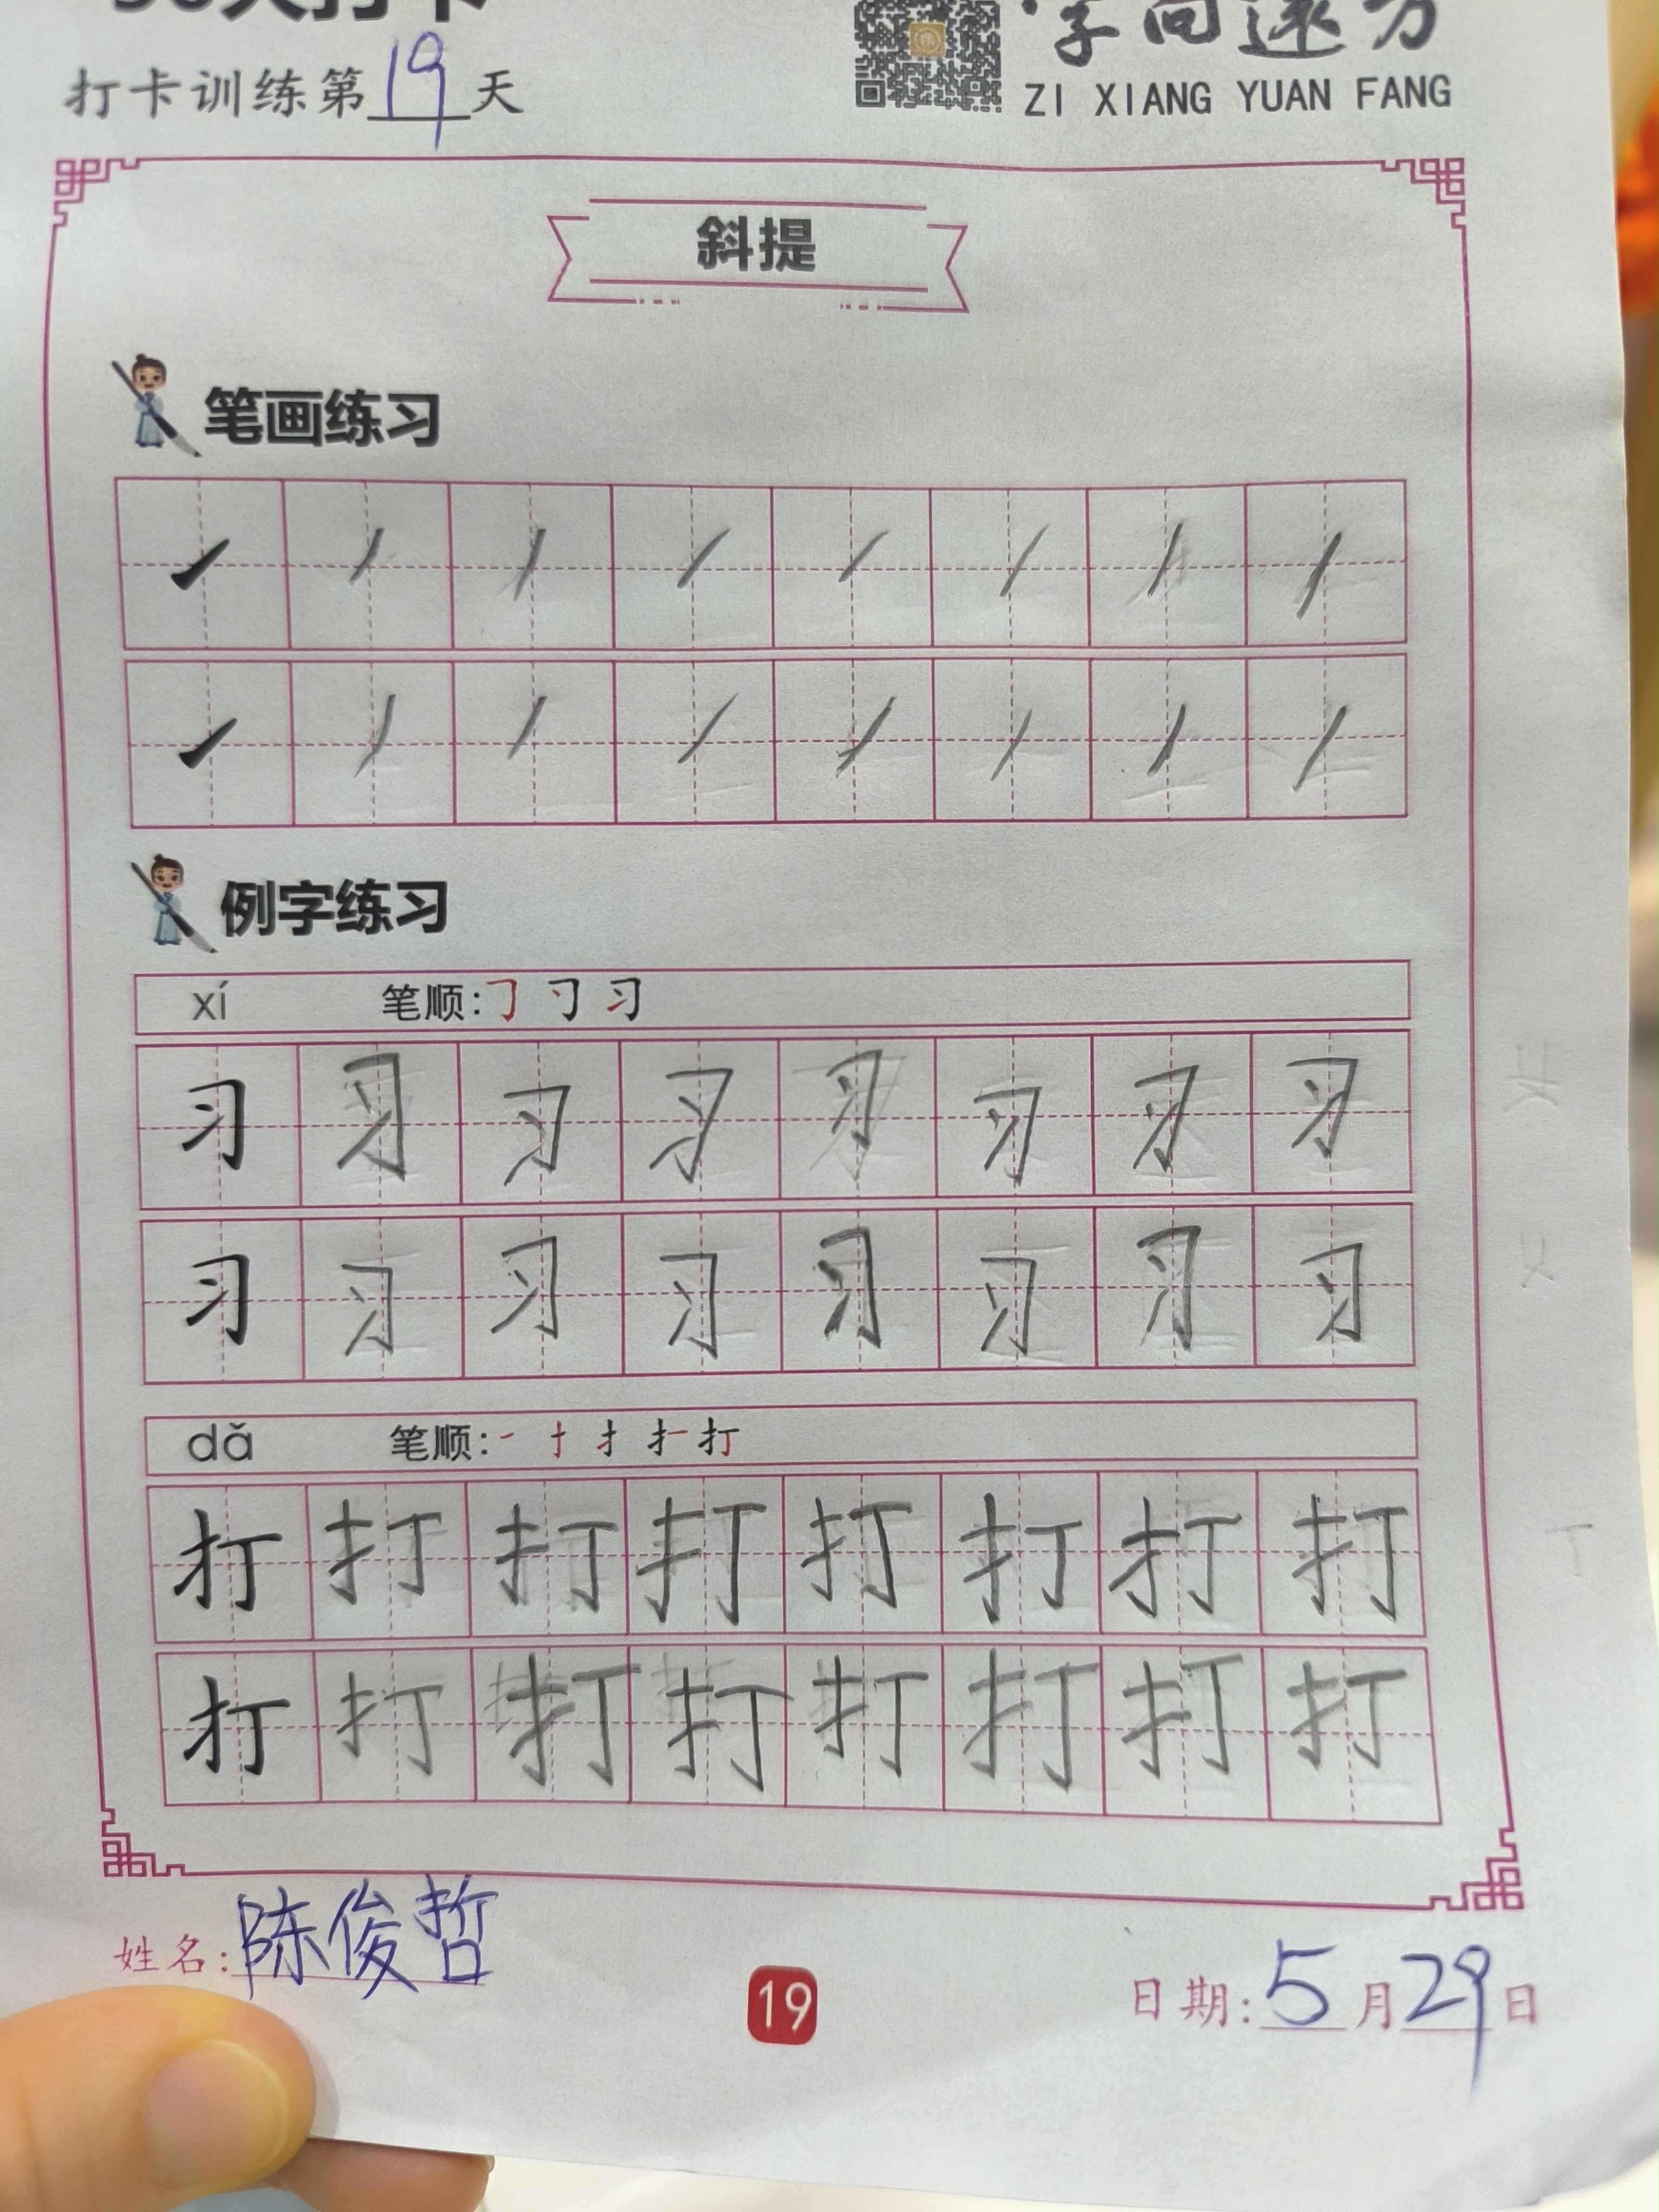 打卡训练第19天
字向远方
ZI XIANG YUAN FANG
斜提
笔画练习
例字练习
xí 笔顺:㇆ 刁 习
习 习 习 习 习 习 习 习
习 习 习 习 习 习 习 习
dǎ 笔顺:一 扌 打
打 打 打 打 打 打 打 打
打 打 打 打 打 打 打 打
姓名:陈俊哲
19
日期:5月29日